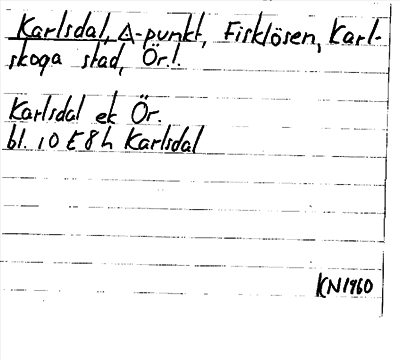 Karlsdal, Δ-punkt, Fisklösen, Karl-
skoga stad, Ör.l.
Karlsdal ek Ör.
bl. 10 E 8 h Karlsdal
KN1960